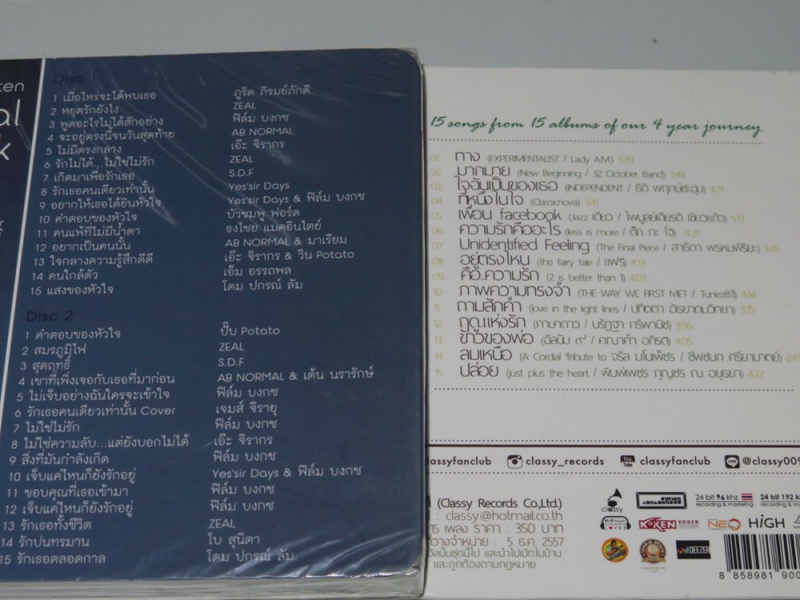 ten
al
k
Disc
1 เมื่อไหร่จะได้พบเธอ ภูริต ภิรมย์ภักดี
2 หยุดรักยังไง ZEAL
3 พูดอะไรไม่ได้สักอย่าง ฟิล์ม บงกช
4 จะอยู่ตรงนี้จนวันสุดท้าย AB NORMAL
5 ไม่มีตรงกลาง เอ๊ะ จิรากร
6 รักไม่ได้... ไม่ใช่ไม่รัก ZEAL
7 เกิดมาเพื่อรักเธอ S.D.F
8 รักเธอคนเดียวเท่านั้น Yes'sir Days
9 อยากให้เธอได้ยินหัวใจ Yes'sir Days & ฟิล์ม บงกช
10 คำตอบของหัวใจ บัวชมพู ฟอร์ด
11 คนแพ้ที่ไม่มีน้ำตา ธงไชย แมคอินไตย์
12 อยากเป็นคนนั้น AB NORMAL & มาเรียม
13 ใจกลางความรู้สึกดีดี เอ๊ะ จิรากร & วิน Potato
14 คนใกล้ตัว เอ็ม อรรถพล
15 แสงของหัวใจ โดม ปกรณ์ ลัม
Disc 2
1 คำตอบของหัวใจ ปั๊บ Potato
2 สมรภูมิไฟ ZEAL
3 สุดฤทธิ์ S.D.F
4 เขาที่เพิ่งเจอกับเธอที่มาก่อน AB NORMAL & เต้น นรารักษ์
5 ไม่เจ็บอย่างฉันใครจะเข้าใจ ฟิล์ม บงกช
6 รักเธอคนเดียวเท่านั้น Cover เจมส์ จิรายุ
7 ไม่ใช่ไม่รัก ฟิล์ม บงกช
8 ไม่ใช่ความลับ...แต่ยังบอกไม่ได้ เอ๊ะ จิรากร
9 สิ่งที่มันกำลังเกิด ฟิล์ม บงกช
10 เจ็บแค่ไหนก็ยังรักอยู่ Yes'sir Days & ฟิล์ม บงกช
11 ขอบคุณที่เธอเข้ามา ฟิล์ม บงกช
12 เจ็บแค่ไหนก็ยังรักอยู่ ฟิล์ม บงกช
13 รักเธอทั้งชีวิต ZEAL
14 รักปนทรมาน โบ สุนิตา
15 รักเธอตลอดกาล โดม ปกรณ์ ลัม
15 songs from 15 albums of our 4 year journey
01. ทาง (EXPERIMENTALIST / Lady A.M) 3.39
02. มากมาย (New Beginning / 32 October Band) 3.49
03. ใจฉันเป็นของเธอ (INDEPENDENT / ธีติ พฤกษ์ชะอุ่ม) 4.21
04. ที่หนึ่งในใจ (Classicnova) 3.41
05. เพื่อน facebook (Jazz เดียว / ไพบูลย์เกียรติ เขียวแก้ว) 5.17
06. ความรักคืออะไร (less is more / ติ๊ก กะ โจ้) 4.21
07. Unidentified Feeling (The Final Piece / สาธิดา พรหมพิริยะ) 3.45
08. อยู่ตรงไหน (the fairy tale / แฟร์) 4.13
09. คือ.ความรัก (2 is better than 1) 4.37
10. ภาพความทรงจำ (THE WAY WE FIRST MET / Tuniez83) 4.14
11. ถามสักคำ (love in the light lines / ปทิตตา อัธยาตมวิทยา) 3.15
12. ฤดูแห่งรัก (ภาษาดาว / นรัฏฐา ทรีพานิช) 3.56
13. ข่าวของพ่อ (อัลบั้ม ๙ / คณาคำ อภิรดี) 4.05
14. ลมเหนือ (A Cordial Tribute to จรัล มโนเพ็ชร / ชีพชนก ศรียามาตย์) 2.4
15. ปล่อย (just plus the heart / พิมพ์เพชร กุญชร ณ อยุธยา) 4.22
classyfanclub classy_records classyfanclub @classy009
(Classy Records Co.,Ltd.)
: classy@hotmail.co.th
15 เพลง ราคาา : 350 บาท
วางจำหน่าย : 5 ธ.ค. 2557
classy 24 bit 96 khz recording & mastering 24 bit 192 k recording & mast
KOXEN NEO HIGH
DEEZER
และถูกต้องตามกฎหมาย
8 858981 900